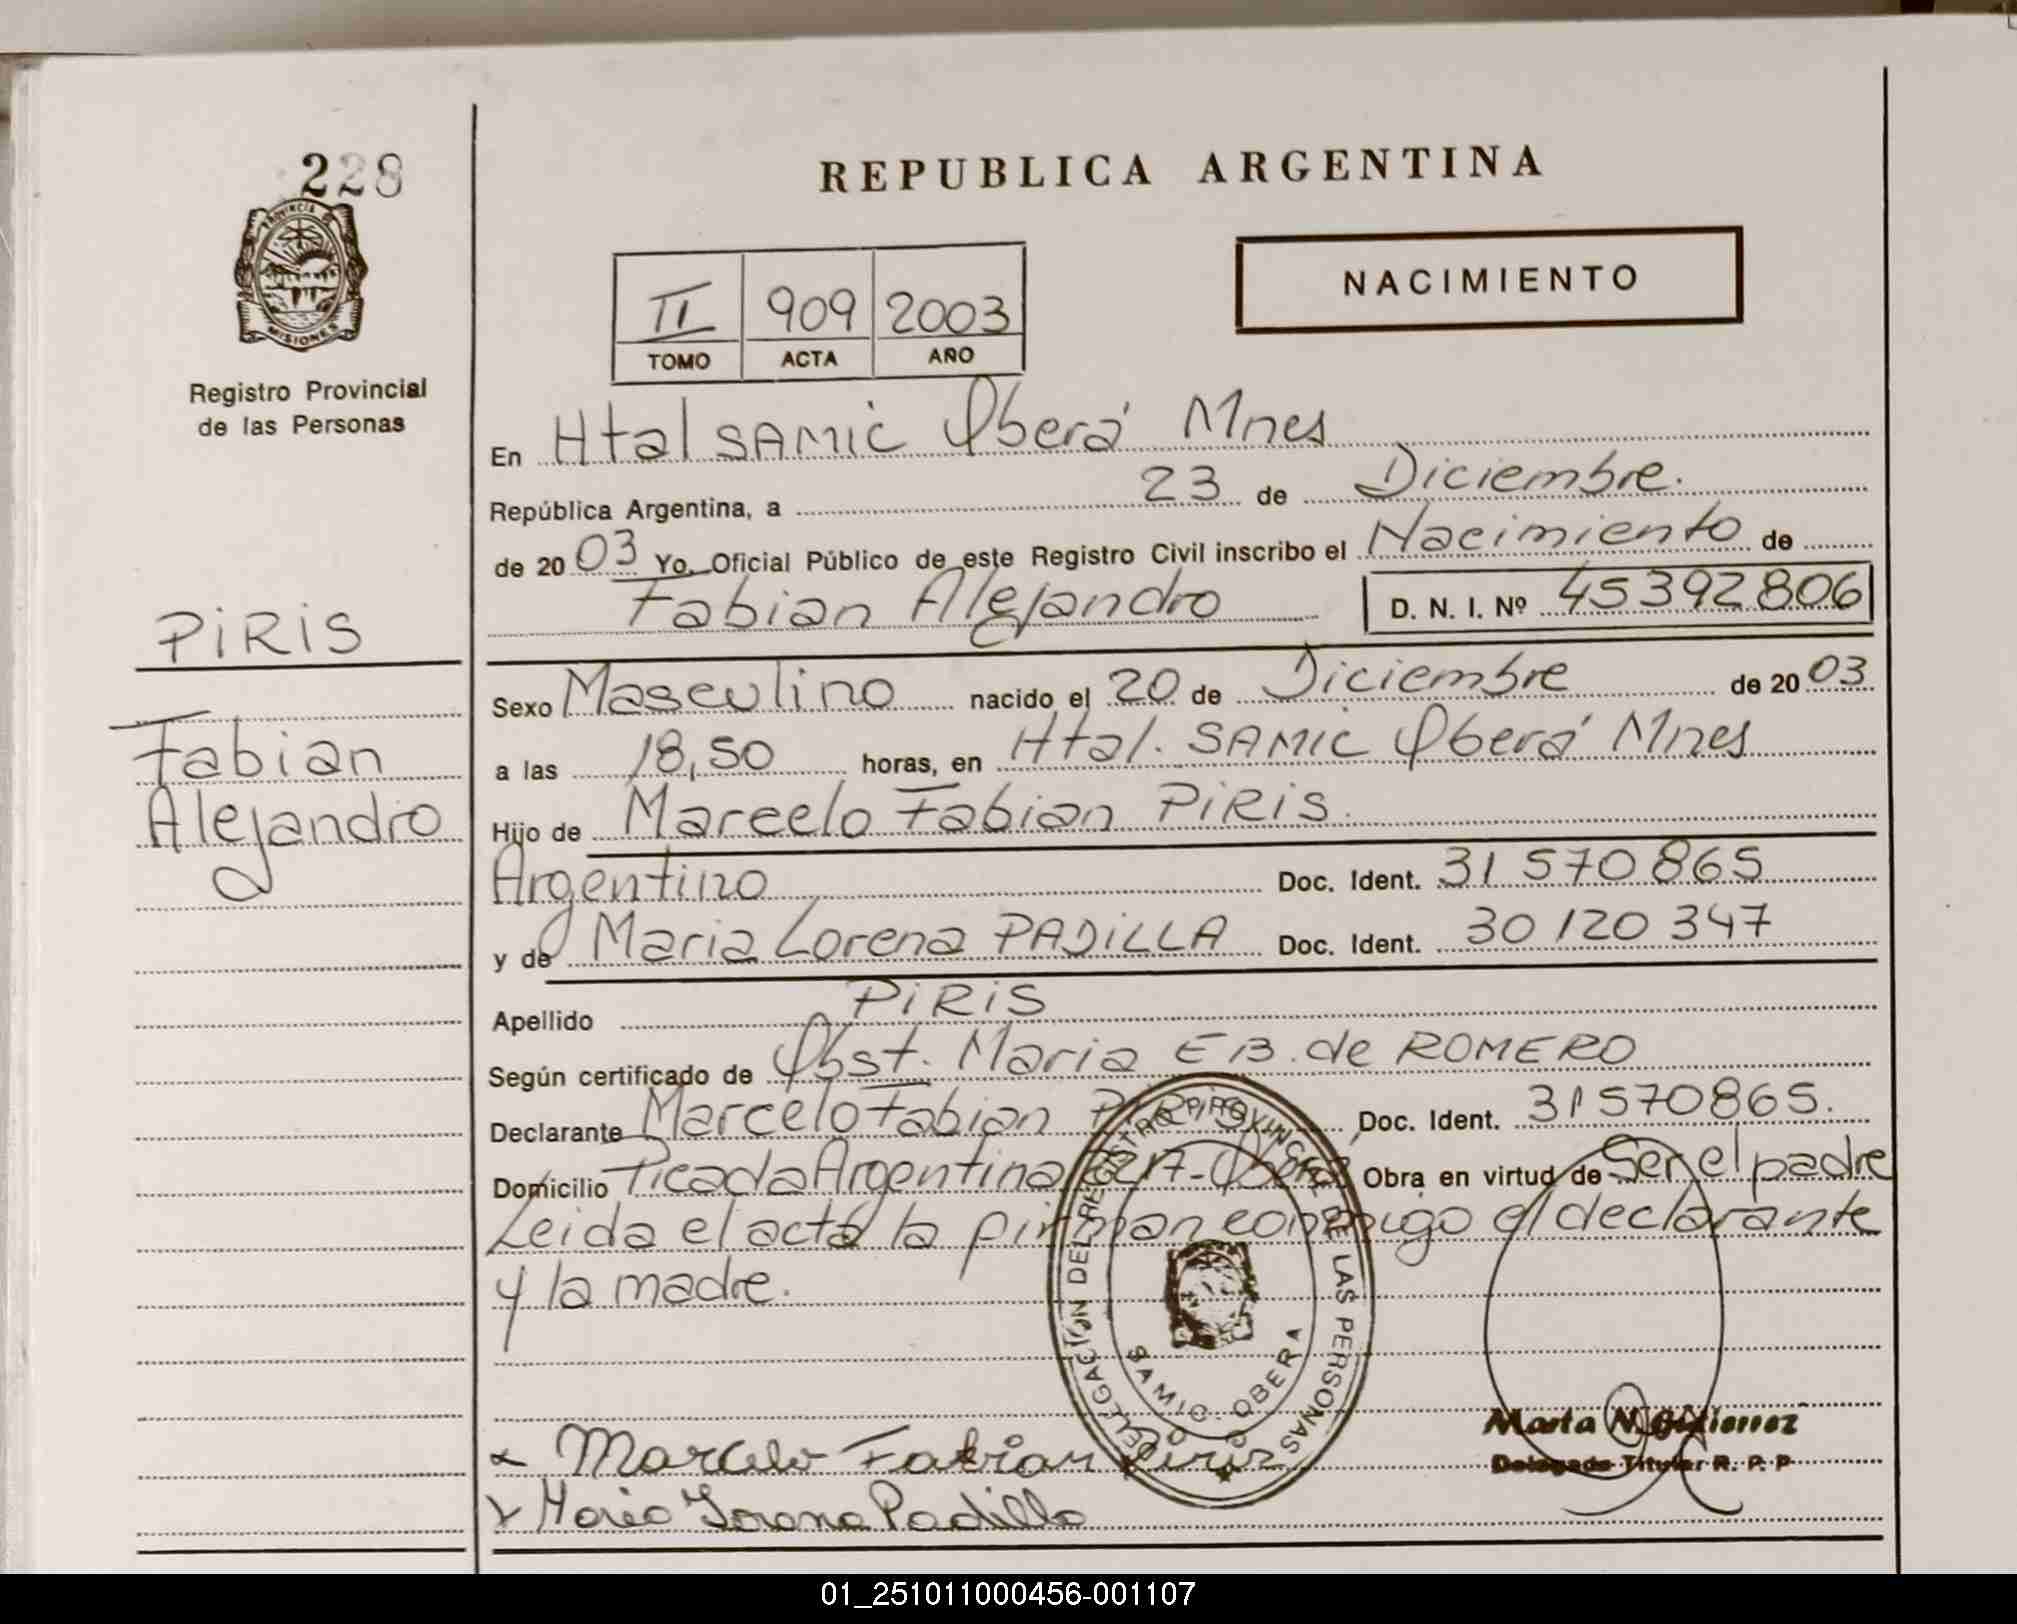 228
REPUBLICA ARGENTINA
PROVINCIA DE
MISIONES
NACIMIENTO
II 909 2003
TOMO ACTA AÑO
Registro Provincial
de las Personas
En Htal SAMIC Oberá Mnes
República Argentina, a 23 de Diciembre.
de 20 03 Yo, Oficial Público de este Registro Civil inscribo el Nacimiento de
Fabian Alejandro D. N. I. Nº 45392806
PIRIS
Fabian
Alejandro
Sexo Masculino nacido el 20 de Diciembre de 20 03
a las 18,50 horas, en Htal. SAMIC Oberá Mnes
Hijo de Marcelo Fabian PIRIS.
Argentino Doc. Ident. 31 570 865
y de Maria Lorena PADILLA Doc. Ident. 30 120 347
Apellido PIRIS
Según certificado de Obst. Maria E B. de ROMERO
Declarante Marcelo Fabian PIRIS Doc. Ident. 31570865.
Domicilio Picada Argentina Oberá Obra en virtud de Ser el padre
Leida el acta la firman conmigo el declarante
y la madre.
DELEGACION DEL REGISTRO PROVINCIAL DE LAS PERSONAS
SAMIC - OBERA
Marta N. Gutierrez
Delegada Titular R. P. P
Marcelo Fabian Piris
Maria Lorena Padilla
01_251011000456-001107